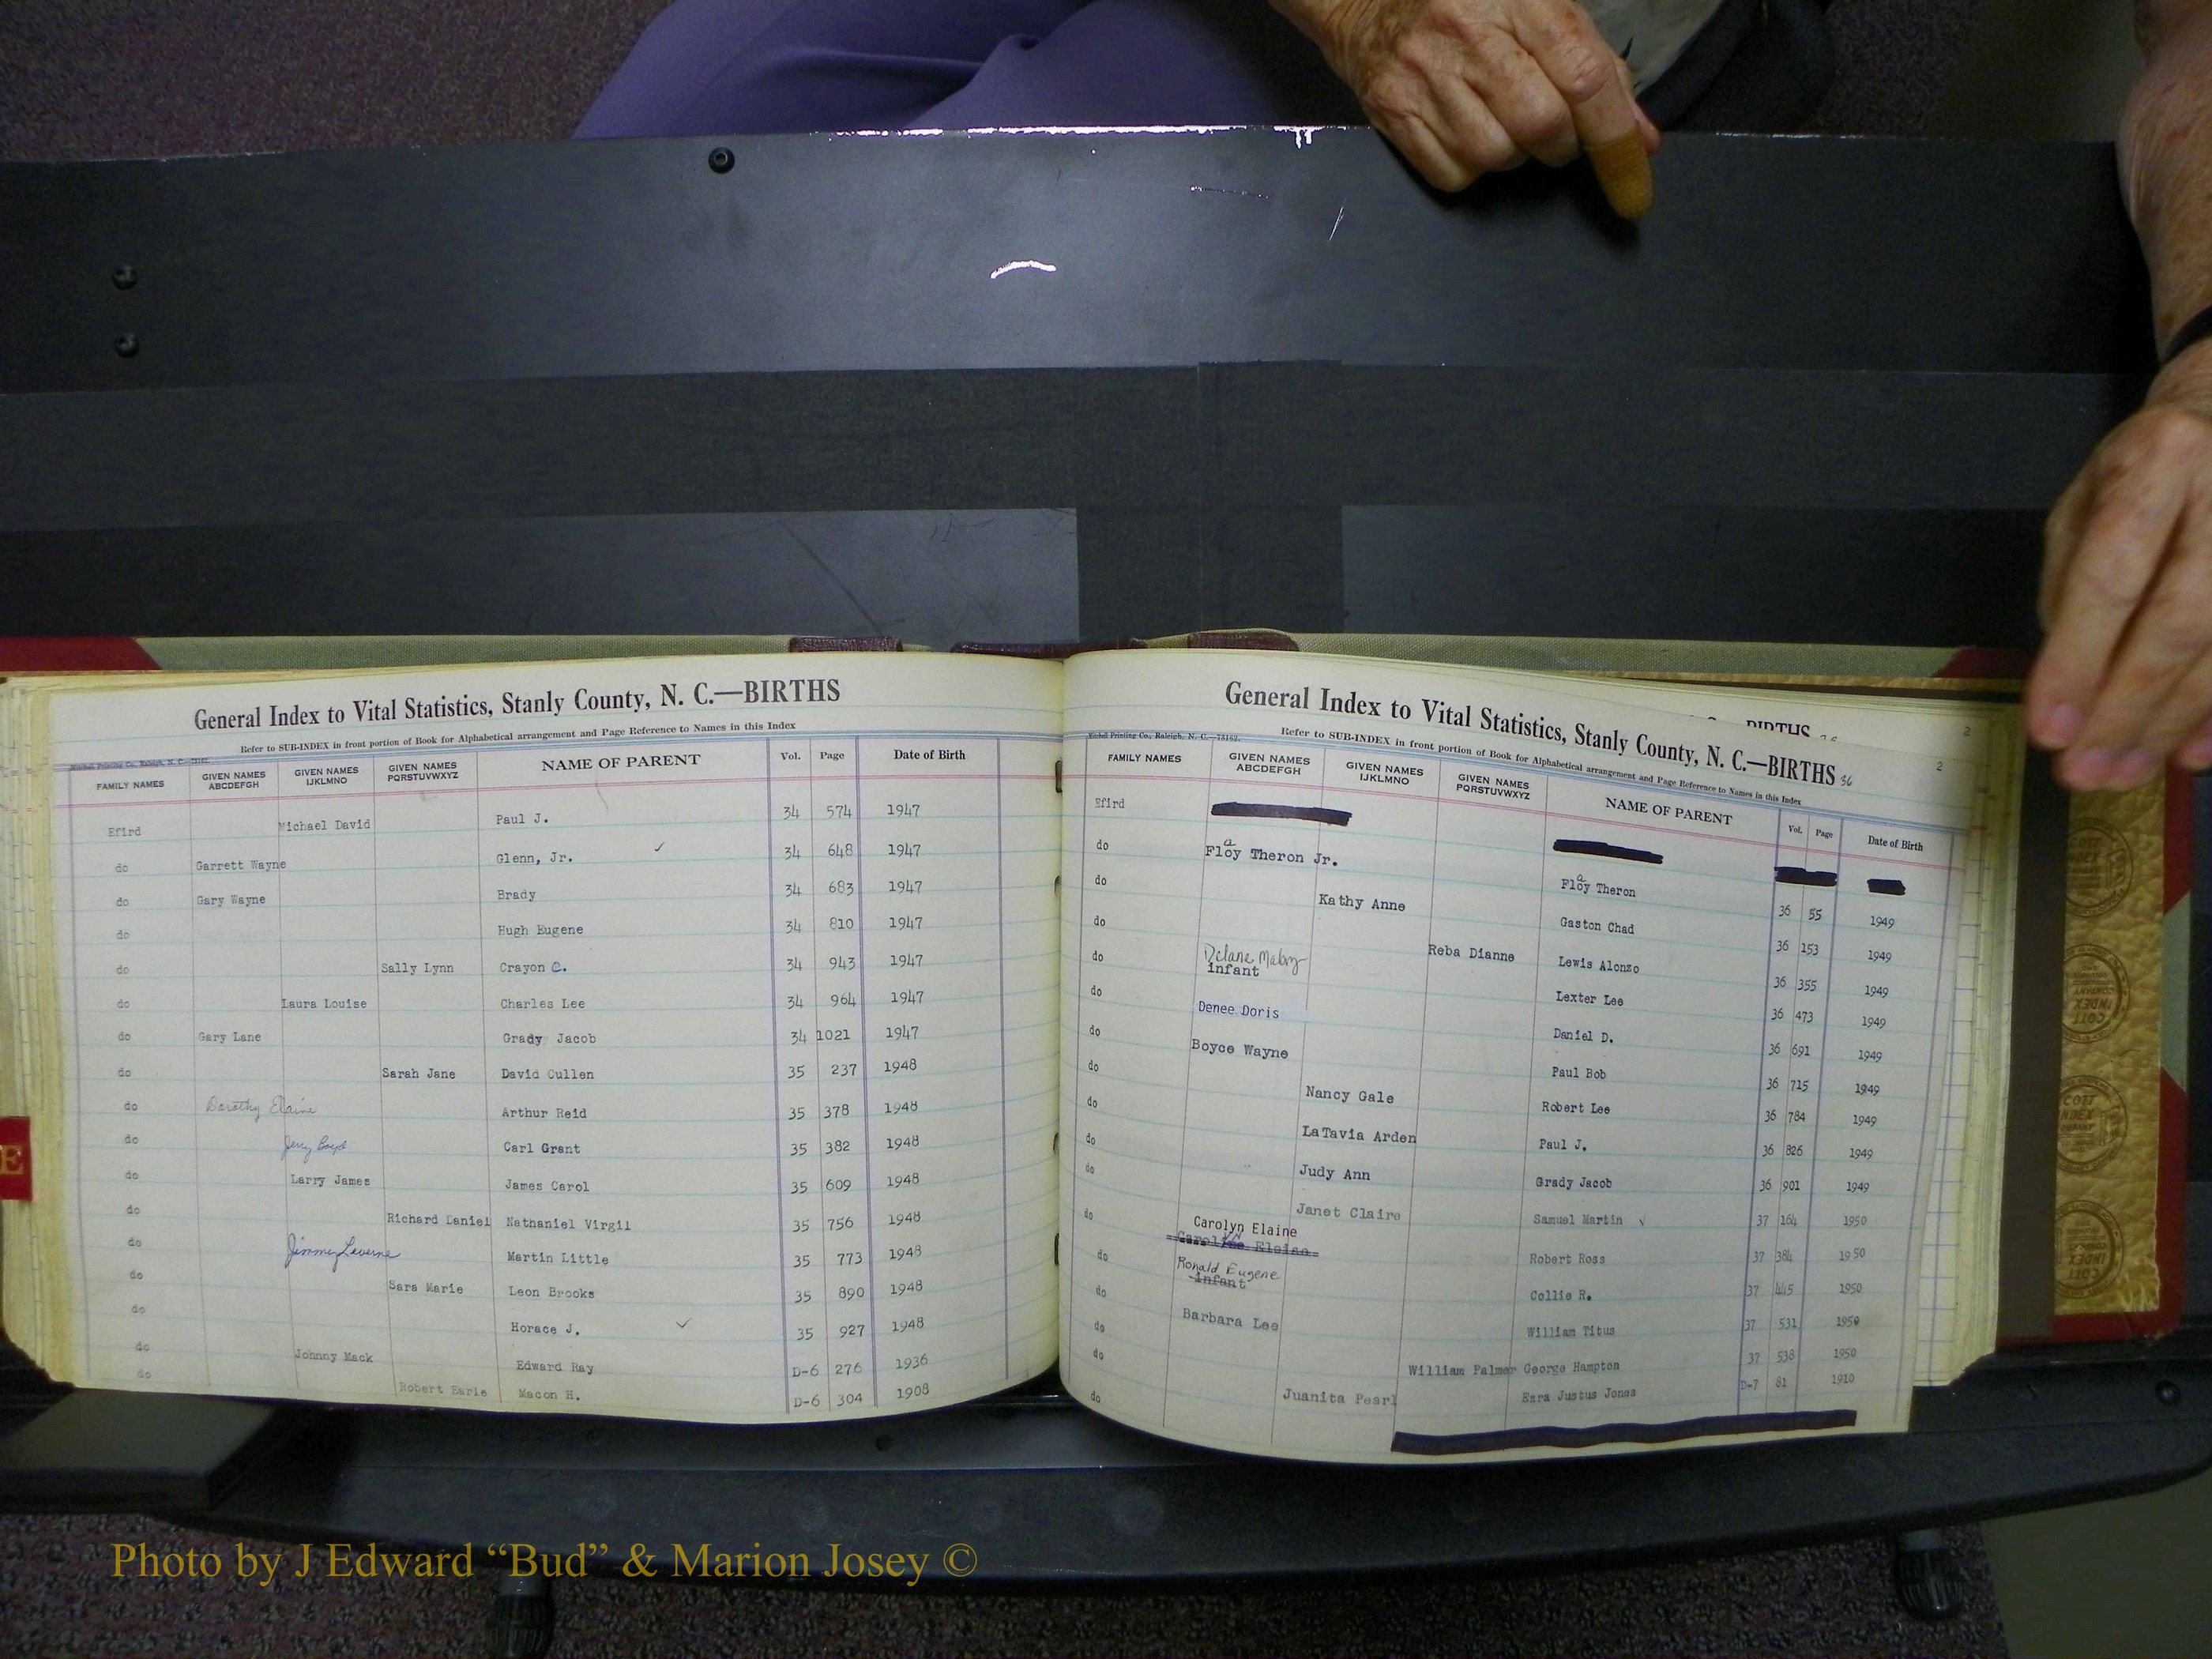 General Index to Vital Statistics, Stanly County, N. C.—BIRTHS
Refer to SUB-INDEX in front portion of Book for Alphabetical arrangement and Page Reference to Names in this Index
FAMILY NAMES GIVEN NAMES ABCDEFGH GIVEN NAMES IJKLMNO GIVEN NAMES PQRSTUVWXYZ NAME OF PARENT Vol. Page Date of Birth
Efird Michael David Paul J. 34 574 1947
do Garrett Wayne Glenn, Jr. ✓ 34 648 1947
do Gary Wayne Brady 34 683 1947
do Hugh Eugene 34 810 1947
do Sally Lynn Crayon C. 34 943 1947
do Laura Louise Charles Lee 34 964 1947
do Gary Lane Grady Jacob 34 1021 1947
do Sarah Jane David Cullen 35 237 1948
do Dorothy Elaine Arthur Reid 35 378 1948
do Jerry Boyd Carl Grant 35 382 1948
do Larry James James Carol 35 609 1948
do Richard Daniel Nathaniel Virgil 35 756 1948
do Jimmy Laverne Martin Little 35 773 1948
do Sara Marie Leon Brooks 35 890 1948
do Horace J. ✓ 35 927 1948
do Johnny Mack Edward Ray D-6 276 1936
do Robert Earle Macon H. D-6 304 1908
E
General Index to Vital Statistics, Stanly County, N. C.—BIRTHS 36
BIRTHS
2
2
Mitchell Printing Co., Raleigh, N. C.—78162.
Refer to SUB-INDEX in front portion of Book for Alphabetical arrangement and Page Reference to Names in this Index
FAMILY NAMES GIVEN NAMES ABCDEFGH GIVEN NAMES IJKLMNO GIVEN NAMES PQRSTUVWXYZ NAME OF PARENT Vol. Page Date of Birth
Efird
do Floy Theron Jr. a Floy Theron a 36 55 1949
do Kathy Anne Gaston Chad 36 153 1949
do Reba Dianne Lewis Alonzo 36 355 1949
do infant Lexter Lee 36 473 1949
do Denee Doris Daniel D. 36 691 1949
do Boyce Wayne Paul Bob 36 715 1949
do Nancy Gale Robert Lee 36 784 1949
do LaTavia Arden Paul J. 36 826 1949
do Judy Ann Grady Jacob 36 901 1949
do Janet Claire Samuel Martin ✓ 37 164 1950
do Carolyn Elaine Robert Ross 37 384 1950
do Ronald Eugene infant Collie R. 37 445 1950
do Barbara Lee William Titus 37 531 1950
do William Palmer George Hampton 37 538 1950
do Juanita Pearl Ezra Justus Jones D-7 81 1910
do
COTT INDEX COMPANY
Photo by J Edward “Bud” & Marion Josey ©